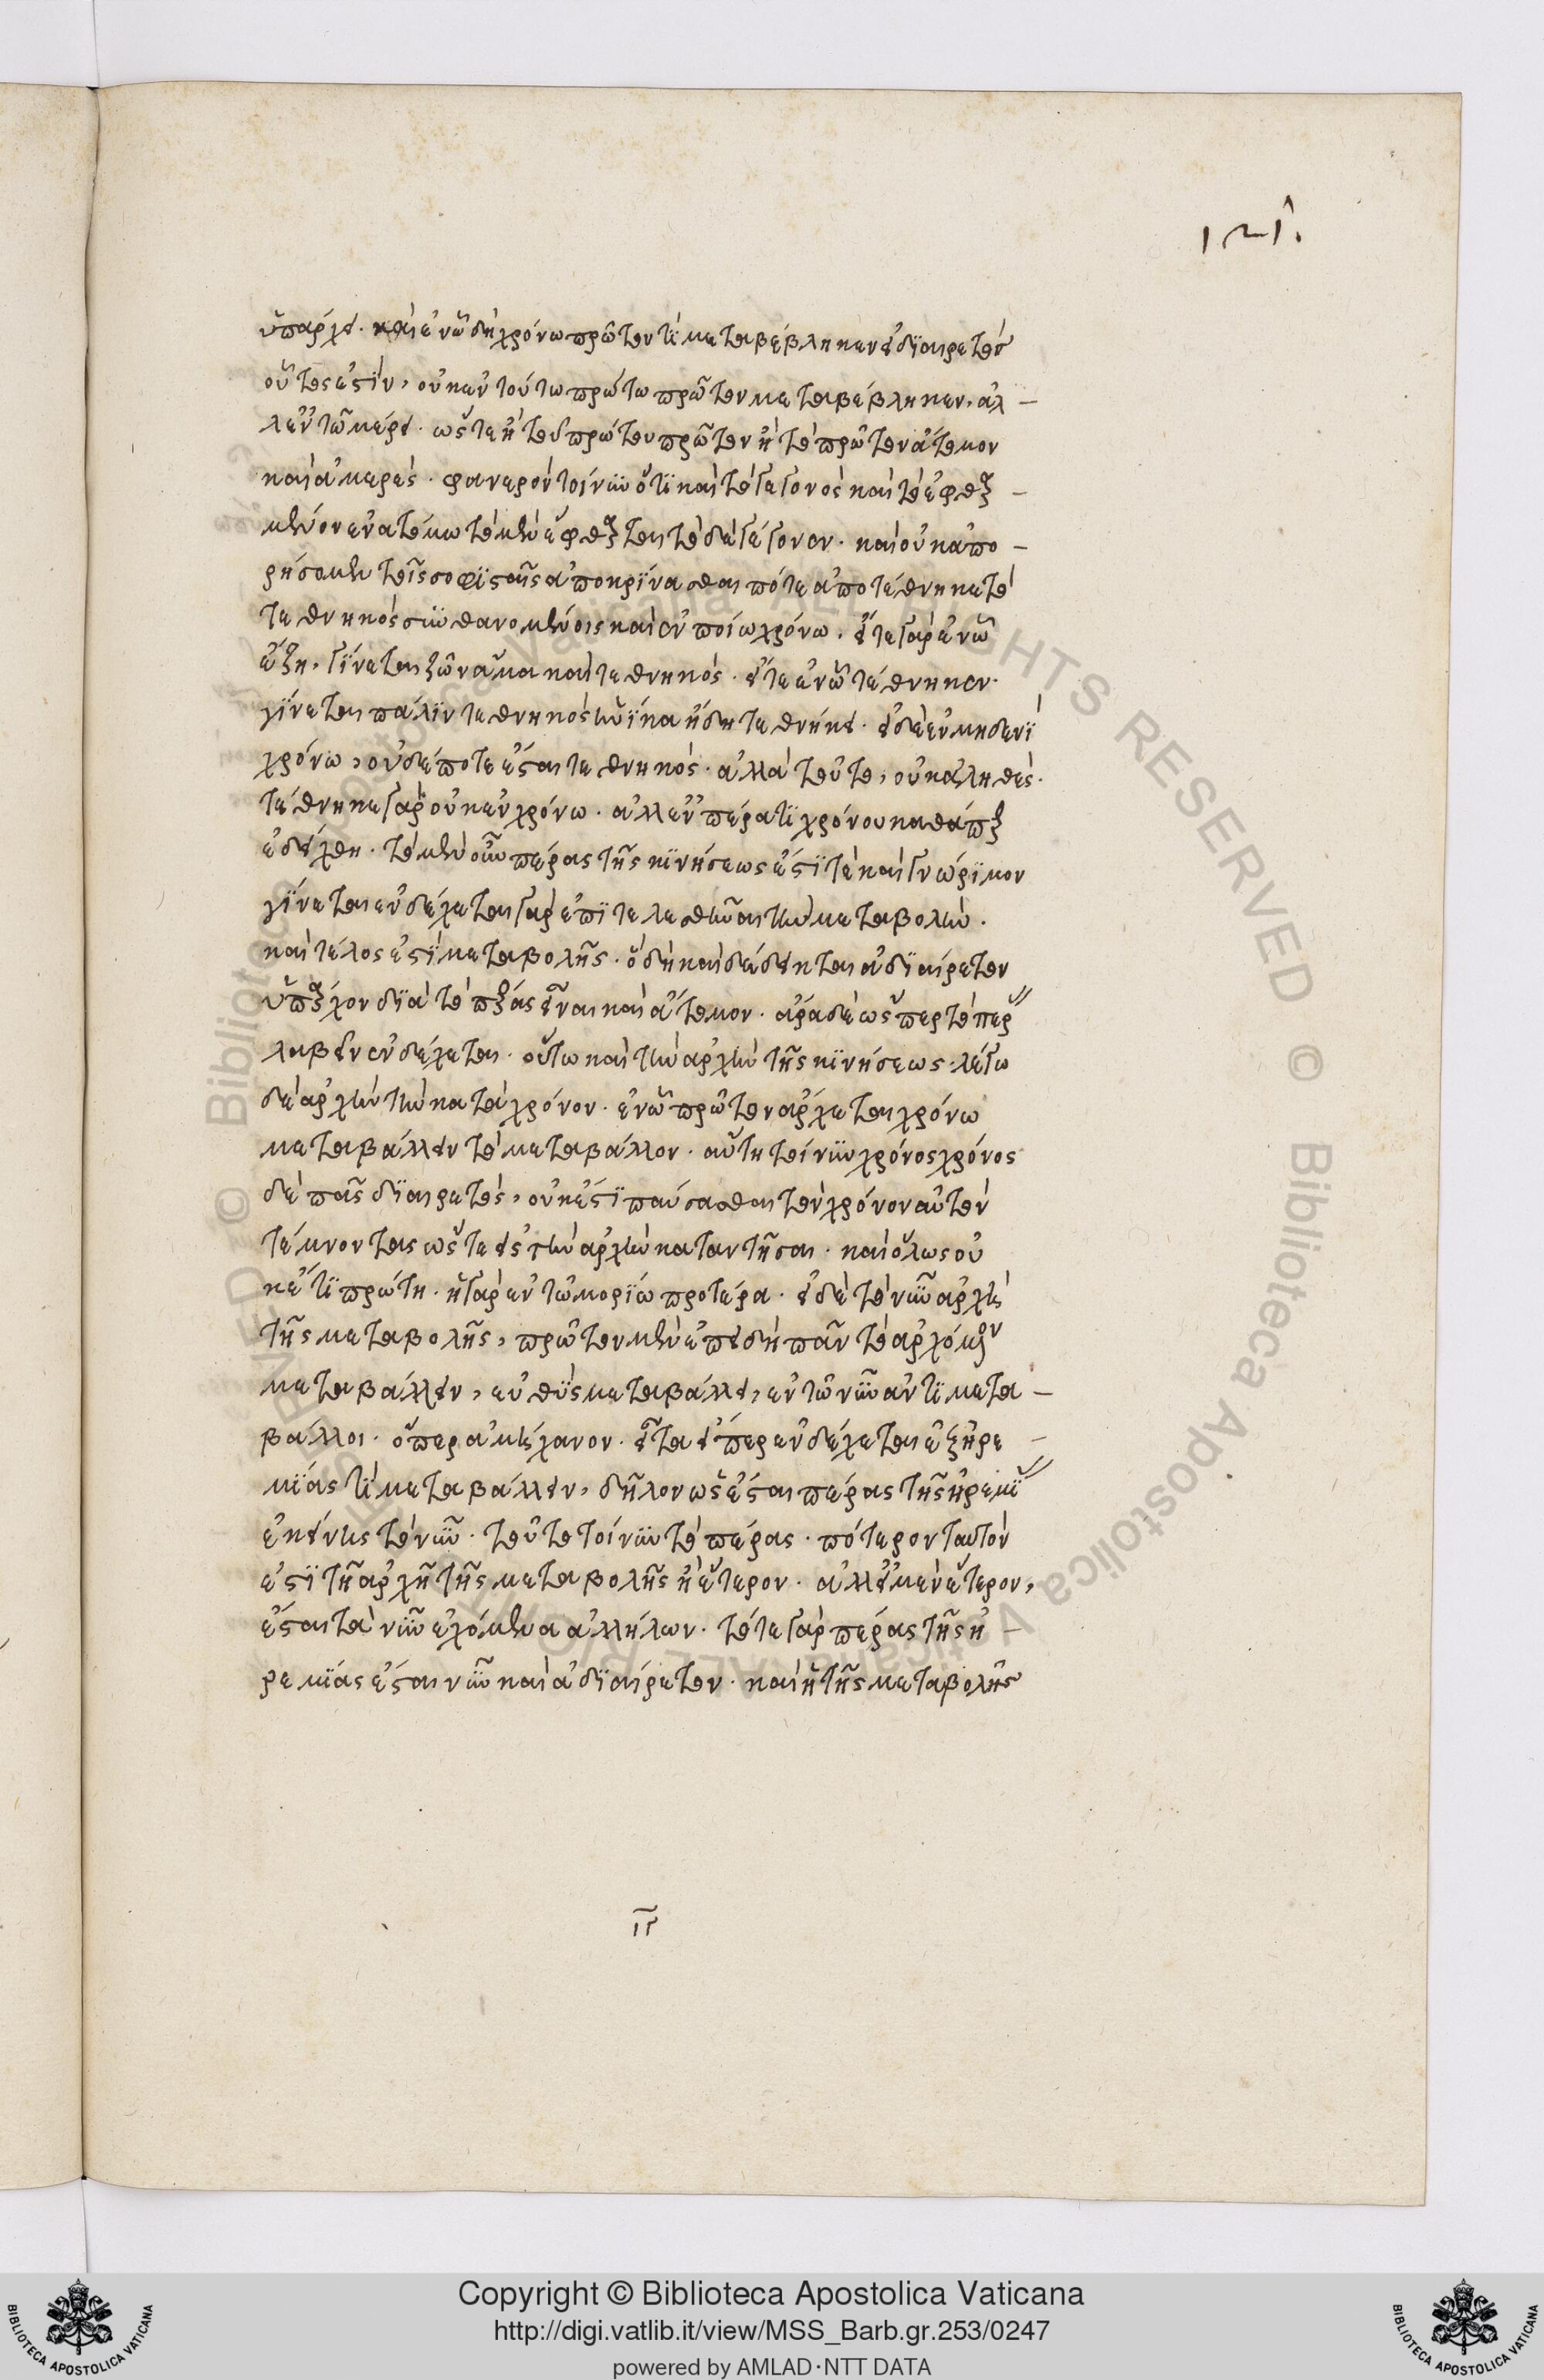 121.
ὑπάρχει. καὶ ἐν ᾧ δὴ χρόνω πρῶτον τὶ μεταβέβληκεν εἰ διαιρετὸς
οὗτος ἐστὶν, οὐκ ἐν τούτω πρώτω πρῶτον μεταβέβληκεν, ἀλ –
λ' ἐν τῶ μέρει. ὥστε ἢ τοῦ πρώτου πρῶτον ἢ τὸ πρῶτον ἄτομον
καὶ ἀμερές. φανερὸν τοίνυν ὅτι καὶ τὸ γεγονὸς καὶ τὸ ἐφθαρ –
μένον ἐν ἀτόμω τὸ μὲν ἔφθαρται τὸ δὲ γέγονεν. καὶ οὐκ ἀπο –
ρήσομεν τοῖς σοφισταῖς ἀποκρίνασθαι πότε ἀποτέθνηκε τὸ
τεθνηκὸς συνθανομένοις καὶ ἐν ποίω χρόνω. εἴτε γὰρ ἐν ᾧ
ἔζη, γίνεται ζῶν ἅμα καὶ τεθνηκός. εἴτε ἐν ᾧ τέθνηκεν
γίνεται πάλιν τεθνηκὸς ἡνίκα ἤδη τεθνήκει. εἰ δὲ ἐν μηδενὶ
χρόνω, οὐδέποτε ἔσται τεθνηκός. ἀλλὰ τοῦτο, οὐκ ἀληθές.
τέθνηκε γὰρ οὐκ ἐν χρόνω. ἀλλ' ἐν πέρατι χρόνου καθάπερ
ἐδείχθη. τὸ μὲν οὖν πέρας τῆς κινήσεως ἔστί τε καὶ γνώριμον
γίνεται ἐνδέχεται γὰρ ἐπιτελεσθῆναι τὴν μεταβολήν.
καὶ τέλος ἐστὶ μεταβολῆς. ὃ δὴ καὶ δέδεικται ἀδιαίρετον
ὑπάρχον διὰ τὸ πέρας εἶναι καὶ ἄτομον. ἆρα δὲ ὥσπερ τὸ πέρ
λαβεῖν ἐνδέχεται. οὕτω καὶ τὴν ἀρχὴν τῆς κινήσεως. λέγω
δὲ ἀρχὴν τὴν κατὰ χρόνον. ἐν ᾧ πρῶτον ἄρχεται χρόνω
μεταβάλλειν τὸ μεταβάλλον. αὕτη τοίνυν χρόνος χρόνος
δὲ πᾶς διαιρετός, οὐκ ἔστι παύσασθαι τὸν χρόνον αὐτὸν
τέμνοντας ὥστε εἰς τὴν ἀρχὴν καταντῆσαι. καὶ ὅλως οὐ
κέτι πρώτη. ἡ γὰρ ἐν τῶ μορίω προτέρα. εἰ δὲ τὸ νῦν ἀρχὴ
τῆς μεταβολῆς, πρῶτον μὲν ἐπειδὴ πᾶν τὸ ἀρχόμενον
μεταβάλλειν, εὐθὺς μεταβάλλει, ἐν τῶ νῦν ἄν τι μετα –
βάλλοι. ὅπερ ἀμήχανον. εἶτα εἴπερ ἐνδέχεται ἐξ ἠρε –
μίας τὶ μεταβάλλειν, δῆλον ὡς ἔσται πέρας τῆς ἠρεμί
ἐκείνης τὸ νῦν. τοῦτο τοίνυν τὸ πέρας. πότερον ταυτόν
ἐστι τῆ ἀρχῆ τῆς μεταβολῆς ἢ ἕτερον. ἀλλ' εἰ μὲν ἕτερον,
ἔσται τὰ νῦν ἐχόμενα ἀλλήλων. τό τε γὰρ πέρας τῆς ἠ –
ρεμίας ἔσται νῦν καὶ ἀδιαίρετον. καὶ ἡ τῆς μεταβολῆς
Copyright © Biblioteca Apostolica Vaticana
http://digi.vatlib.it/view/MSS_Barb.gr.253/0247
powered by AMLAD·NTT DATA